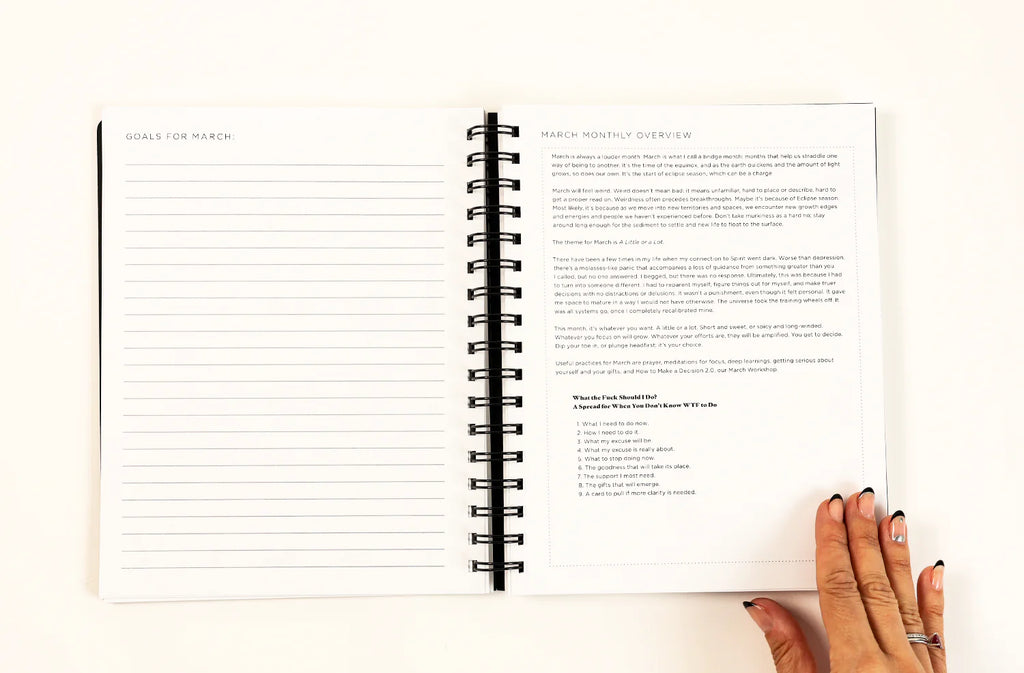 GOALS FOR MARCH:
MARCH MONTHLY OVERVIEW
March is always a louder month. March is what I call a bridge month: months that help us straddle one
way of being to another. It's the time of the equinox, and as the earth quickens and the amount of light
grows, so does our own. It's the start of eclipse season, which can be a charge.
March will feel weird. Weird doesn't mean bad; it means unfamiliar, hard to place or describe, hard to
get a proper read on. Weirdness often precedes breakthroughs. Maybe it's because of Eclipse season.
Most likely, it's because as we move into new territories and spaces, we encounter new growth edges
and energies and people we haven't experienced before. Don't take murkiness as a hard no; stay
around long enough for the sediment to settle and new life to float to the surface.
The theme for March is A Little or a Lot.
There have been a few times in my life when my connection to Spirit went dark. Worse than depression,
there's a molasses-like panic that accompanies a loss of guidance from something greater than you.
I called, but no one answered. I begged, but there was no response. Ultimately, this was because I had
to turn into someone different. I had to reparent myself, figure things out for myself, and make truer
decisions with no distractions or delusions. It wasn't a punishment, even though it felt personal. It gave
me space to mature in a way I would not have otherwise. The universe took the training wheels off. It
was all systems go, once I completely recalibrated mine.
This month, it's whatever you want. A little or a lot. Short and sweet, or spicy and long-winded.
Whatever you focus on will grow. Whatever your efforts are, they will be amplified. You get to decide.
Dip your toe in, or plunge headfirst; it's your choice.
Useful practices for March are prayer, meditations for focus, deep learnings, getting serious about
yourself and your gifts, and How to Make a Decision 2.0, our March Workshop.
What the Fuck Should I Do?
A Spread for When You Don't Know WTF to Do
1. What I need to do now.
2. How I need to do it.
3. What my excuse will be.
4. What my excuse is really about.
5. What to stop doing now.
6. The goodness that will take its place.
7. The support I most need.
8. The gifts that will emerge.
9. A card to pull if more clarity is needed.